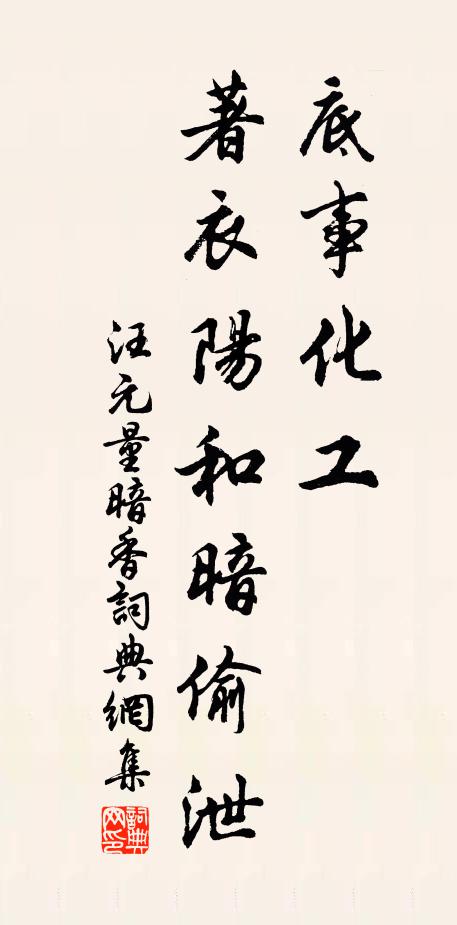 底事化工
著衣陽和暗偷泄
汪元量暗香詞典網集
詞典網印